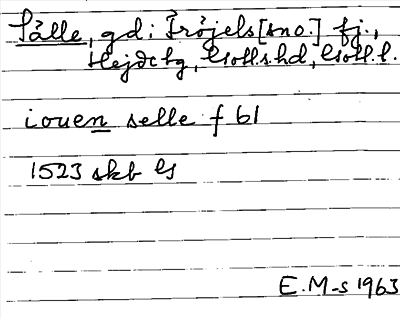 Sålle, gd i Fröjels [sno.] fj.,
Hejde tg, Gotl.s hd, Gotl. l.
iouen selle f 61
1523 skb G
E.M-s 1963